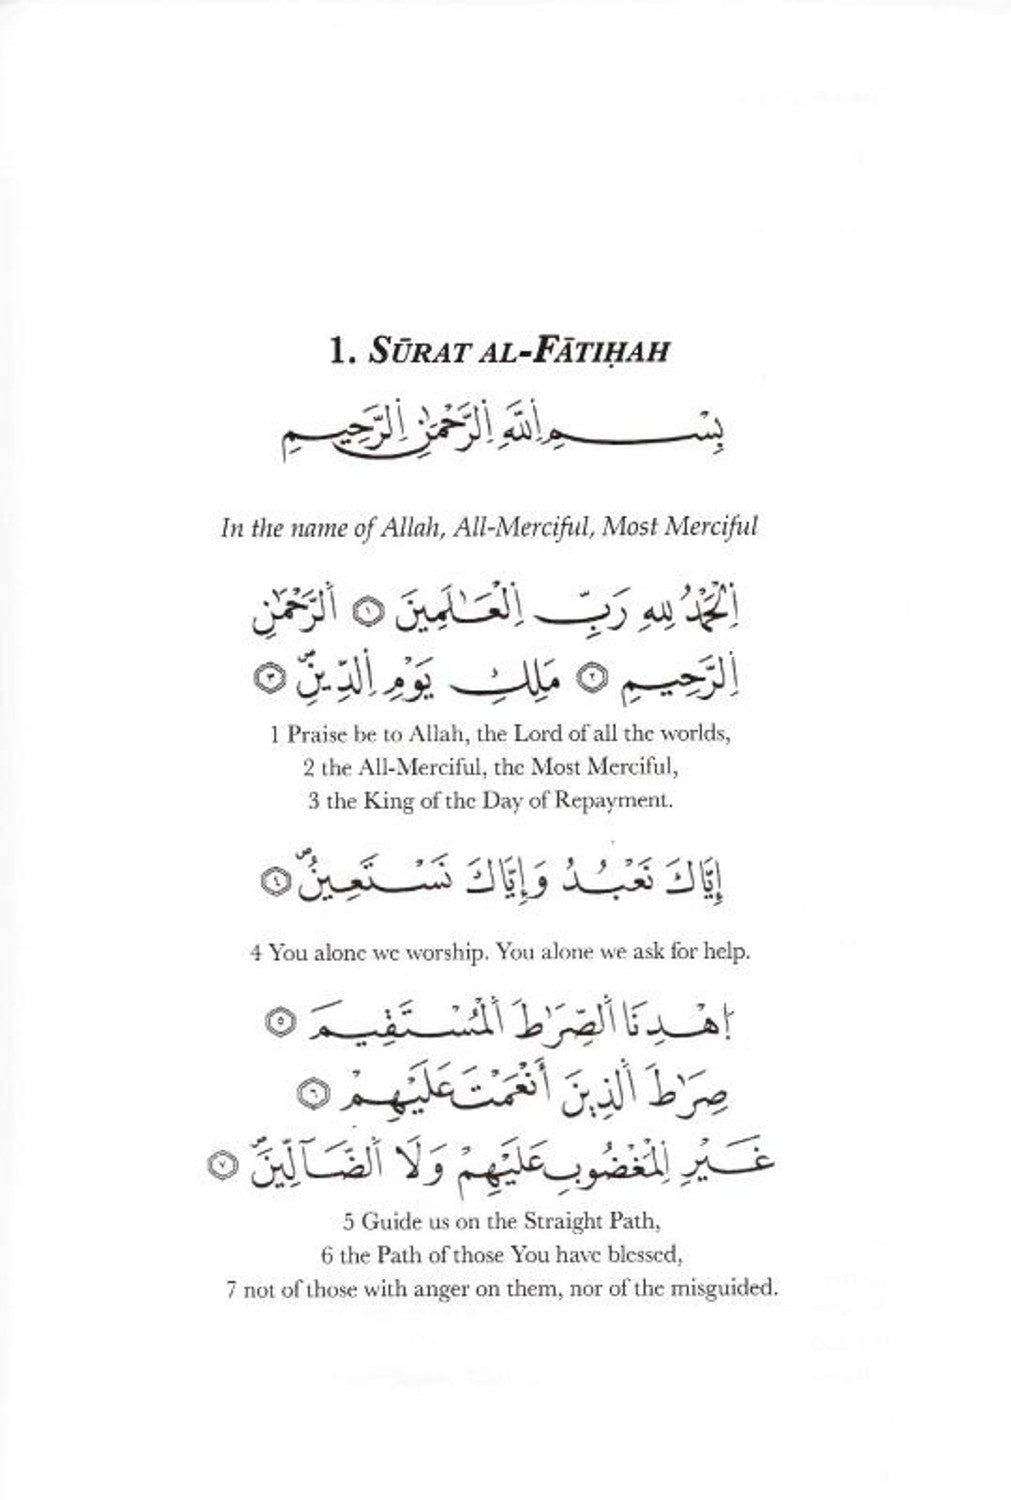 1. SŪRAT AL-FĀTIḤAH
بِسْمِ اِللَّهِ اِلرَّحْمَٰنِ اِلرَّحِيمِ
In the name of Allah, All-Merciful, Most Merciful
اِلْحَمْدُ لِلهِ رَبِّ اِلْعَٰلَمِينَ ١ اَلرَّحْمَٰنِ
اِلرَّحِيمِ ٢ مَلِكِ يَوْمِ اِلدِّينِۖ ٣
1 Praise be to Allah, the Lord of all the worlds,
2 the All-Merciful, the Most Merciful,
3 the King of the Day of Repayment.
إِيَّاكَ نَعْبُدُ وَإِيَّاكَ نَسْتَعِينُۖ ٤
4 You alone we worship. You alone we ask for help.
اِهْدِنَا اَلصِّرَٰطَ اَلْمُسْتَقِيمَ ٥
صِرَٰطَ اَلذِينَ أَنْعَمْتَ عَلَيْهِمْ ٦
غَيْرِ اِلْمَغْضُوبِ عَلَيْهِمْ وَلَا اَلضَّآلِّينَۖ ٧
5 Guide us on the Straight Path,
6 the Path of those You have blessed,
7 not of those with anger on them, nor of the misguided.